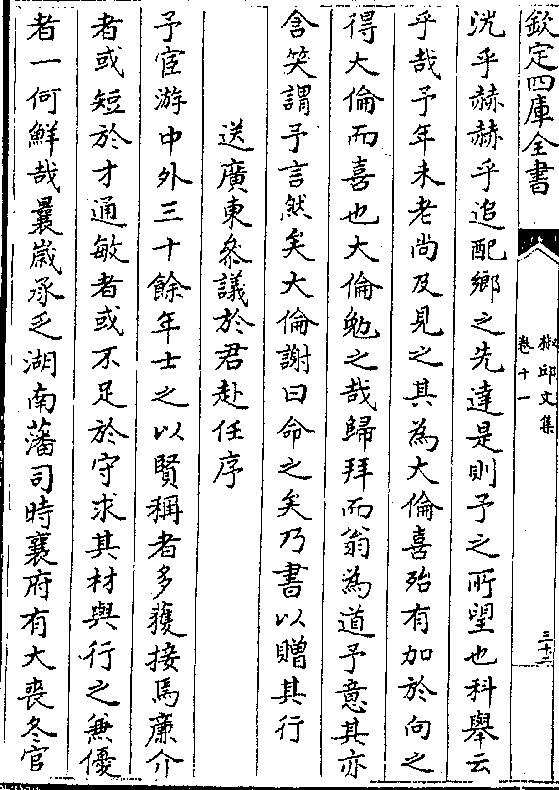 欽定四庫全書
椒邱文集
卷十一
三十二
洸乎赫赫乎追配鄉之先達是則予之所望也科舉云
乎哉予年未老尚及見之其為大倫喜殆有加於向之
得大倫而喜也大倫勉之哉歸拜而翁為道予意其亦
含笑謂予言然矣大倫謝曰命之矣乃書以贈其行
送廣東叅議於君赴任序
予宦游中外三十餘年士之以賢稱者多獲接焉廉介
者或短於才通敏者或不足於守求其材與行之兼優
者一何鮮哉曩嵗承乏湖南藩司時襄府有大喪冬官